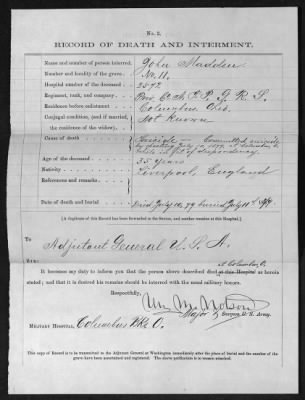 No. 2.
RECORD OF DEATH AND INTERMENT.
Name and number of person interred, John Madden
Number and locality of the grave, No. 11.
Hospital number of the deceased
Regiment, rank, and company, G. R. S.
Residence before enlistment Columbus Ohio
Conjugal condition, (and if married, Not Known
the residence of the widow),
Cause of death Suicide — Committed suicide
by shooting July 10, 1879, at Columbus O.
while in a fit of despondency.
Age of the deceased 35 years
Nativity Liverpool, England
References and remarks
Date of death and burial Died July 10, 79 buried July 11th 1879
[A duplicate of this Record has been forwarded to the Sexton, and another remains at this Hospital.]
To
Adjutant General U. S. A.
Sir:
at Columbus, O.
It becomes my duty to inform you that the person above described died at this Hospital as herein
stated; and that it is desired his remains should be interred with the usual military honors.
Respectfully,
Major & Surgeon U. S. Army.
Military Hospital, Columbus Bks O.
This copy of Record is to be transmitted to the Adjutant General at Washington immediately after the place of burial and the number of the
grave have been ascertained and registered. The above notification is to remain attached.